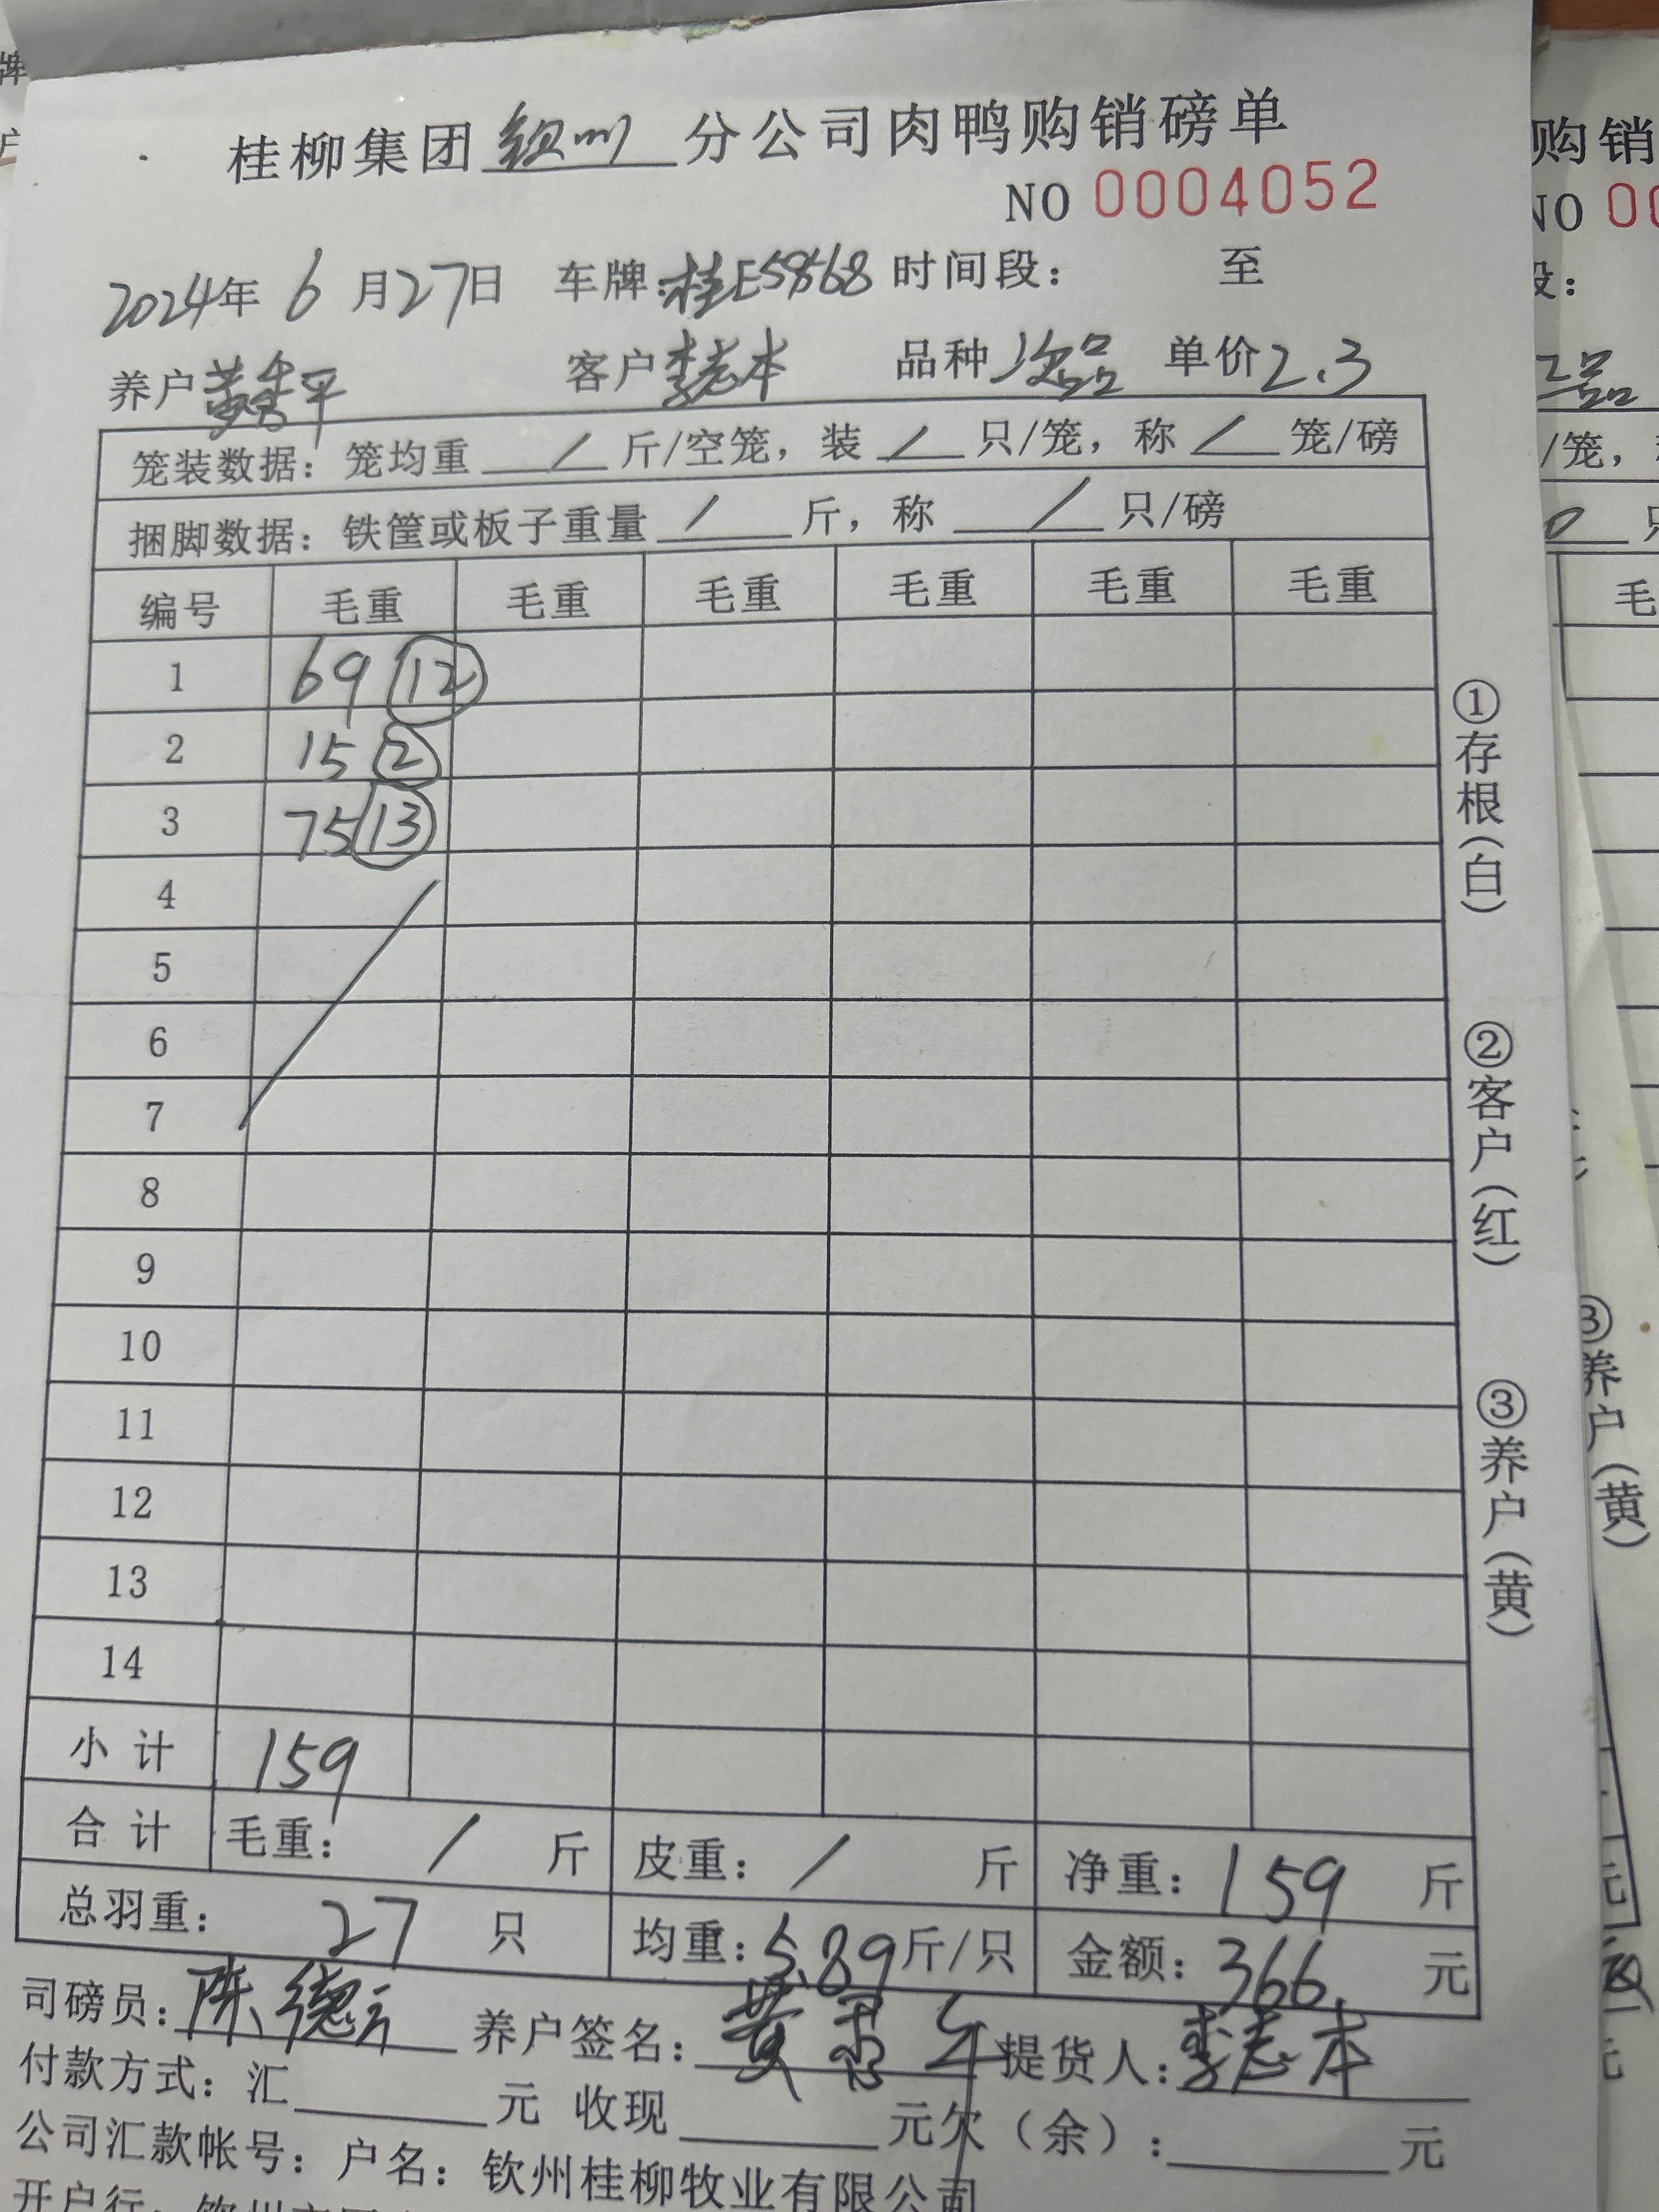 桂柳集团钦州分公司肉鸭购销磅单
NO 0004052
2024年 6 月27日 车牌:桂E58568 时间段: 至
养户黄秀平 客户李志本 品种次品 单价2.3
笼装数据: 笼均重 / 斤/空笼, 装 / 只/笼, 称 / 笼/磅
捆脚数据: 铁筐或板子重量 / 斤, 称 / 只/磅
编号 毛重 毛重 毛重 毛重 毛重 毛重
1 69 ⑫
2 15 ②
3 75 ⑬
4
5
6
7
8
9
10
11
12
13
14
小 计 159
合 计 毛重: / 斤 皮重: / 斤 净重: 159 斤
总羽重: 27 只 均重: 5.89斤/只 金额: 366. 元
司磅员: 陈德 养户签名: 黄秀平 提货人: 李志本
付款方式: 汇 元 收现 元欠(余): 元
公司汇款帐号: 户名: 钦州桂柳牧业有限公司
开户行:
①存根(白)
②客户(红)
③养户(黄)
购销
NO 00
段:
/笼,
只
毛
③养户(黄)
元
元
牌
户